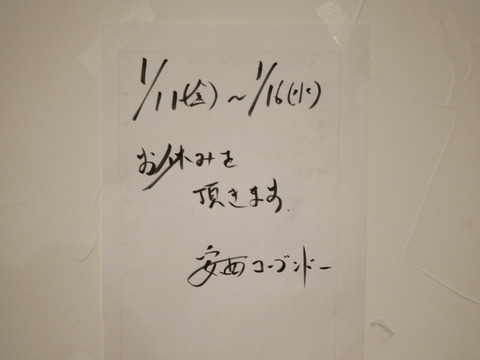 1/11(金)~1/16(水)
お休みを
頂きます.
安西コーブンドー